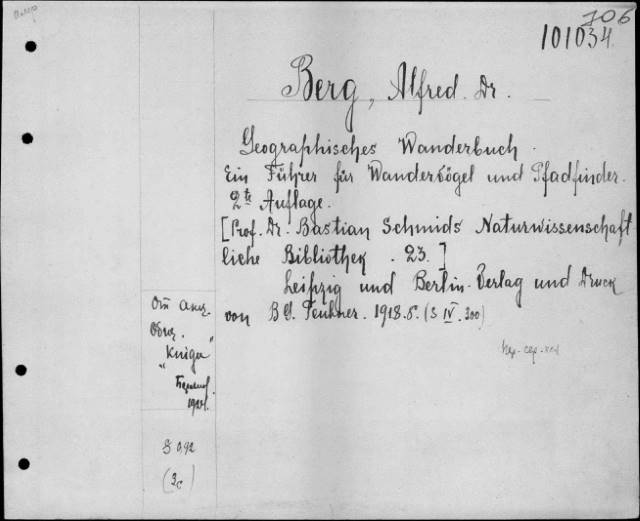 706
101034.
Berg, Alfred. Dr.
Geographisches Wanderbuch.
Ein Führer für Wandervögel und Pfadfinder.
2te Auflage.
[Prof. Dr. Bastian Schmids Naturwissenschaft
liche Bibliothek. 23.]
Leipzig und Berlin. Verlag und Druck
von B G. Teubner. 1918. 8°. (S IV. 300)
От акц.
Общ.
"Книга"
(3c)